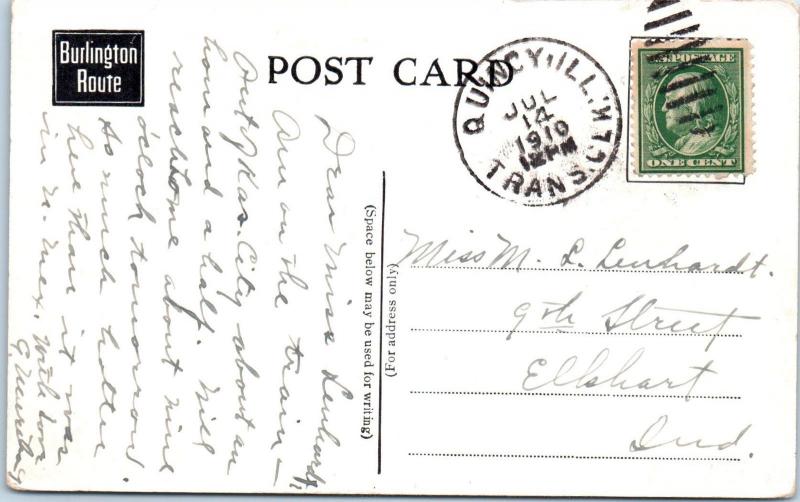 Burlington
Route
POST CARD
QUINCY, ILL.
TRANS. CLK
JUL
14
1910
12 PM
U.S. POSTAGE
ONE CENT
Dear Miss Lenhardt,
Am on the train —
Out of Kas. City about an
hour and a half. Will
reach home about nine
o'clock tomorrow.
As much hotter
here than it was
in N. Mex. With love
G.
(Space below may be used for writing)
(For address only)
Miss M. L. Lenhardt.
9th Street
Elkhart
Ind.